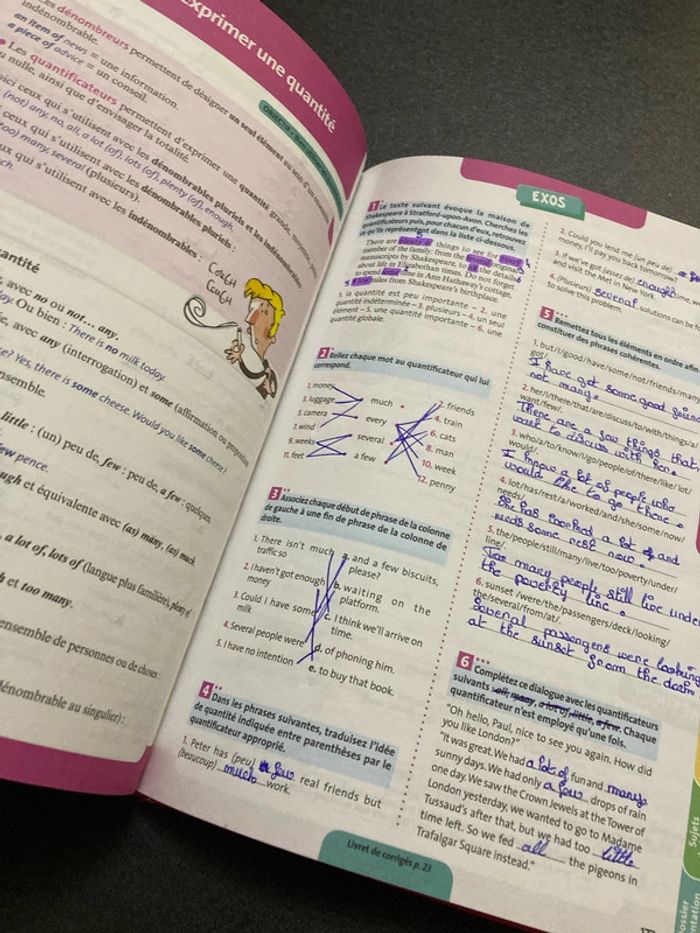 Exprimer une quantité
Les dénombreurs permettent de désigner un seul élément au sein d'un
indénombrable.
an item of news = une information.
a piece of advice = un conseil.
Les quantificateurs permettent d'exprimer une quantité grande, moyenne,
u nulle, ainsi que d'envisager la totalité.
oici ceux qui s'utilisent avec les dénombrables pluriels et les indénombrables :
(not) any, no, all, a lot (of), lots (of), plenty (of), enough.
ceux qui s'utilisent avec les dénombrables pluriels :
too) many, several (plusieurs).
ux qui s'utilisent avec les indénombrables :
ch.
COUGH
COUGH
antité
, avec no ou not... any.
oy. Ou bien : There is no milk today.
e, avec any (interrogation) et some (affirmation ou proposition
e? Yes, there is some cheese. Would you like some cheese?
nsemble.
little : (un) peu de, few : peu de, a few : quelques
ew pence.
ugh et équivalente avec (as) many, (as) much
a lot of, lots of (langue plus familière), plenty of
h et too many.
ensemble de personnes ou de choses :
dénombrable au singulier) :
EXOS
1 Le texte suivant évoque la maison de
Shakespeare à Stratford-upon-Avon. Cherchez les
quantificateurs puis, pour chacun d'eux, retrouvez
ce qu'ils représentent dans la liste ci-dessous.
There are plenty of things to see for every
member of the family: from the several original
manuscripts by Shakespeare, to all the details
about life in Elizabethan times. Do not forget
to spend some time in Ann Hathaway's cottage,
a few miles from Shakespeare's birthplace.
1. la quantité est peu importante – 2. une
quantité indéterminée – 3. plusieurs – 4. un seul
élément – 5. une quantité importante – 6. une
quantité globale.
2 Reliez chaque mot au quantificateur qui lui
correspond.
1. money
3. luggage
5. camera
7. wind
9. weeks
11. feet
much
every
several
a few
2. friends
4. train
6. cats
8. man
10. week
12. penny
3 Associez chaque début de phrase de la colonne
de gauche à une fin de phrase de la colonne de
droite.
1. There isn't much
traffic so
2. I haven't got enough
money
3. Could I have some
milk
4. Several people were
5. I have no intention
a. and a few biscuits,
please?
b. waiting on the
platform.
c. I think we'll arrive on
time.
d. of phoning him.
e. to buy that book.
4 Dans les phrases suivantes, traduisez l'idée
de quantité indiquée entre parenthèses par le
quantificateur approprié.
1. Peter has (peu) a few real friends but
(beaucoup) much work.
2. Could you lend me (un peu de)
money, I'll pay you back tomorrow?
3. If we've got (assez de) enough time
and visit the Met in New York.
4. (Plusieurs) several solutions can
to solve this problem.
5 Remettez tous les éléments en ordre afin
constituer des phrases cohérentes.
1. but/I/good/have/some/not/friends/many
got/
I have got some good
not many.
2. her/I/there/that/are/discuss/to/with/things/
want/few/.
There are a few things that
want to discuss with her.
3. who/a/to/know/I/go/people/of/there/like/lot/
would/.
I know a lot of people who
would like to go there.
4. lot/has/rest/a/worked/and/she/some/now/
needs/
She has worked a lot of and
needs some rest now.
5. the/people/still/many/live/too/poverty/under/
line/.
Too many people still live under
the poverty line.
6. sunset /were/the/passengers/deck/looking/
the/several/from/at/.
Several passengers were looking
at the sunset from the deck
6 Complétez ce dialogue avec les quantificateurs
suivants : all, many, a lot of, little, a few. Chaque
quantificateur n'est employé qu'une fois.
"Oh hello, Paul, nice to see you again. How did
you like London?"
"It was great. We had a lot of fun and many
sunny days. We had only a few drops of rain
one day. We saw the Crown Jewels at the Tower of
London yesterday, we wanted to go to Madame
Tussaud's after that, but we had too little
time left. So we fed all the pigeons in
Trafalgar Square instead."
Livret de corrigés p. 23
Sujets